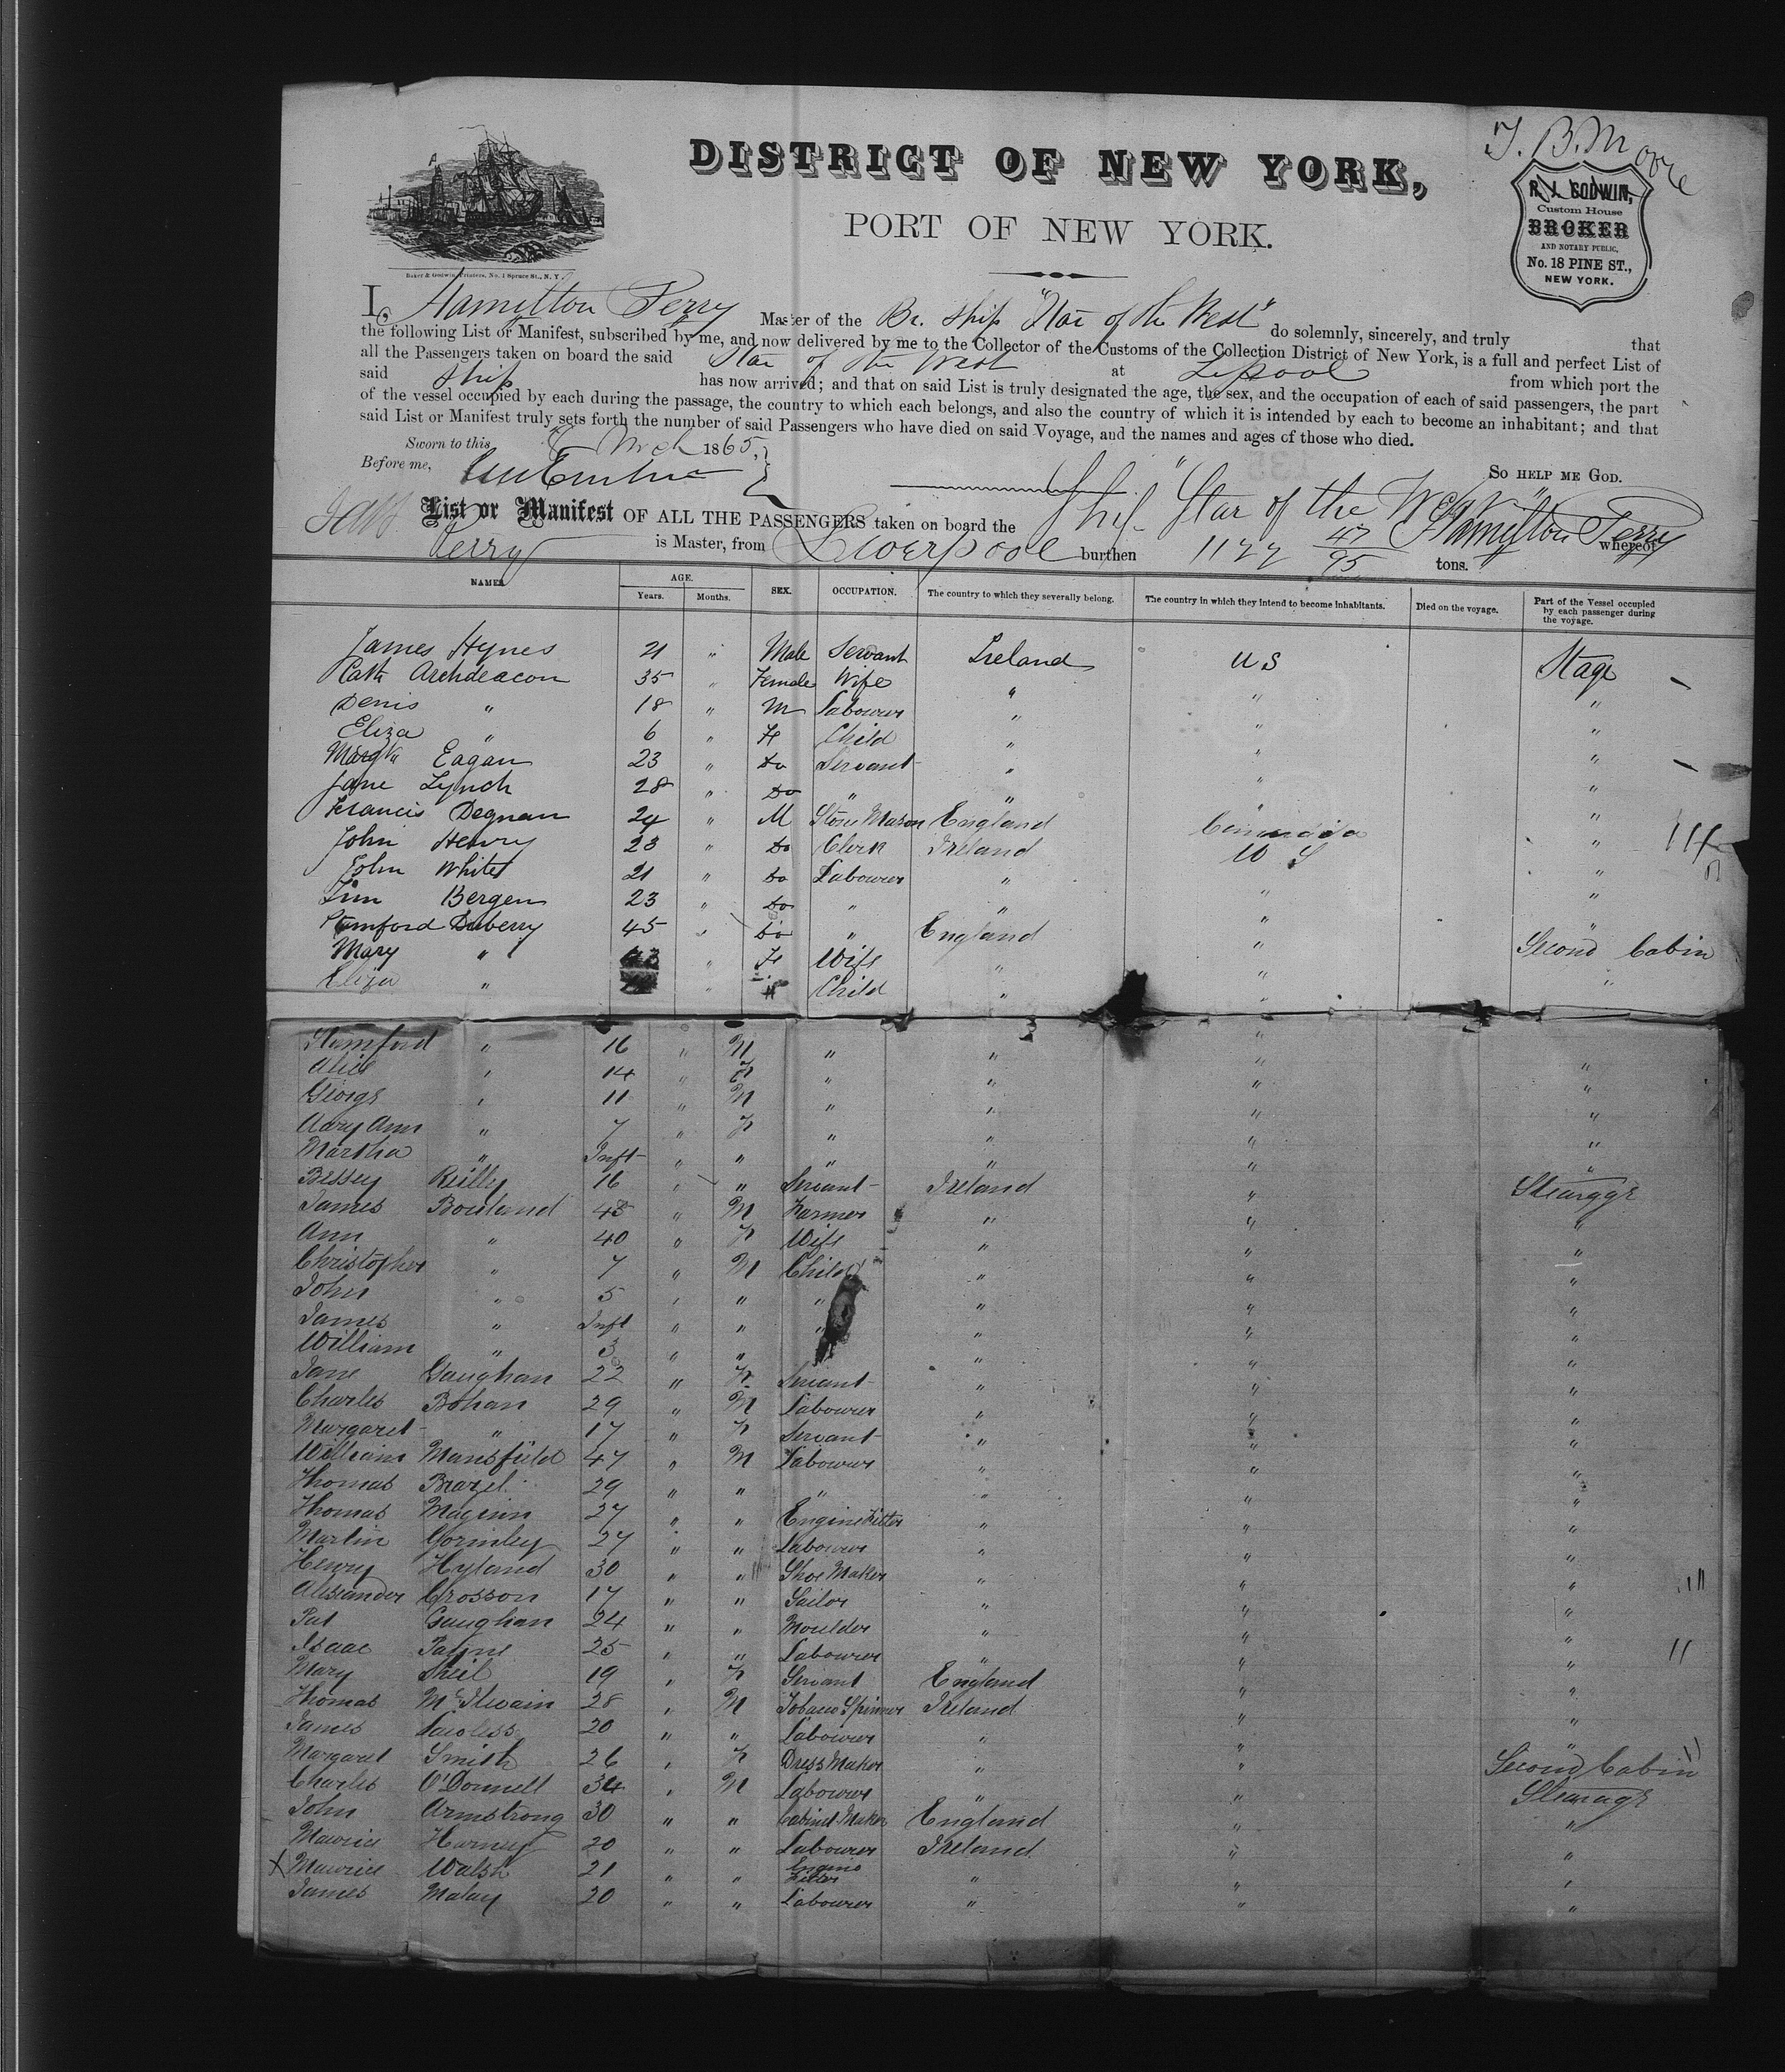 T. B. Moore
R. J. GODWIN,
Custom House
BROKER
AND NOTARY PUBLIC,
No. 18 PINE ST.,
NEW YORK.
DISTRICT OF NEW YORK,
PORT OF NEW YORK.
Baker & Godwin, Printers, No. 1 Spruce St., N. Y.
I, Hamilton Perry Master of the Br. Ship "Star of the West" do solemnly, sincerely, and truly that
the following List or Manifest, subscribed by me, and now delivered by me to the Collector of the Customs of the Collection District of New York, is a full and perfect List of
all the Passengers taken on board the said Star of the West at Lpool from which port the
said Ship has now arrived; and that on said List is truly designated the age, the sex, and the occupation of each of said passengers, the part
of the vessel occupied by each during the passage, the country to which each belongs, and also the country of which it is intended by each to become an inhabitant; and that
said List or Manifest truly sets forth the number of said Passengers who have died on said Voyage, and the names and ages of those who died.
Sworn to this 8 Mch 1865,
Before me,
SO HELP ME GOD.
List or Manifest OF ALL THE PASSENGERS taken on board the Ship "Star of the West" whereof Hamilton Perry
Perry is Master, from Liverpool burthen 1122 47/95 tons.
NAMES AGE. SEX. OCCUPATION. The country to which they severally belong. The country in which they intend to become inhabitants. Died on the voyage. Part of the Vessel occupied by each passenger during the voyage.
Years. Months.
James Hynes 21 " Male Servant Ireland U S Stage
Cath Archdeacon 35 " Female Wife " " "
Denis " 18 " M Labourer " " "
Eliza " 6 " F Child " " "
Margt Eagan 23 " Do Servant " " "
Jane Lynch 28 " Do " " " "
Francis Degnan 24 " M Stone Mason England Canada "
John Henry 23 " Do Clerk Ireland U S "
John White 21 " Do Labourer " " "
Tim Bergen 23 " Do " " " "
Stamford Duberry 45 " Do " England " Second Cabin
Mary " 43 " F Wife " " "
Eliza " " " Child " "
Stamford " 16 " M " " " "
Alice " 14 " F " " " "
George " 11 " M " " " "
Mary Ann " 7 " F " " " "
Martha " Inft " " " " " "
Bessey Reilly 16 " " Servant Ireland " Stearage
James Bowland 48 " M Farmer " " "
Ann " 40 " F Wife " " "
Christopher " 7 " M Child " " "
John " 5 " " " " " "
James " Inft " " " " " "
William " 3 " " " " "
Jane Gaughan 22 " F Servant " " "
Charles Bohan 29 " M Labourer " " "
Margaret " 17 " F Servant " " "
William Mansfield 47 " M Labourer " " "
Thomas Brazel 29 " " " " " "
Thomas Maginn 27 " " Engine Fitter " " "
Martin Gormley 27 " " Labourer " " "
Henry Hyland 30 " " Shoe Maker " " "
Alexander Crosson 17 " " Sailor " " "
Pat Gaughan 24 " " Moulder " " "
Isaac Payne 25 " " Labourer " " "
Mary Sheil 19 " F Servant England " "
Thomas McIlwain 28 " M Tobacco Spinner Ireland " "
James Lawless 20 " " Labourer " " "
Margaret Smith 26 " F Dress Maker " " Second Cabin
Charles O'Donnell 34 " M Labourer " " Stearage
John Armstrong 30 " " Cabinet Maker England " "
Maurice Harney 20 " " Labourer Ireland " "
X Maurice Walsh 21 " " Engine Fitter " " "
James Malay 20 " " Labourer " " "